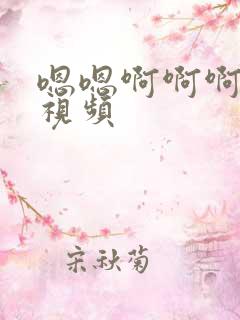 嗯嗯啊啊啊
視頻
宋秋菊